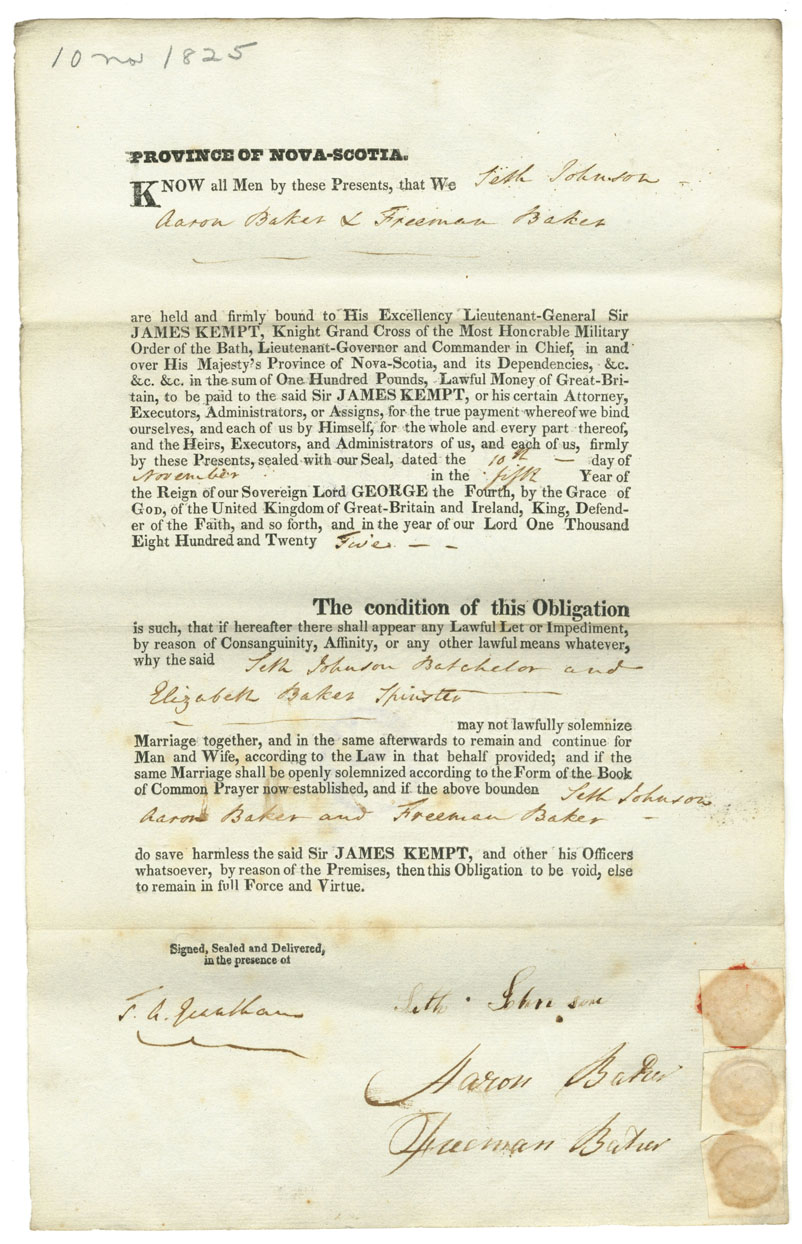 10 Nov 1825
PROVINCE OF NOVA-SCOTIA.
KNOW all Men by these Presents, that We Seth Johnson
Aaron Baker & Freeman Baker
are held and firmly bound to His Excellency Lieutenant-General Sir
JAMES KEMPT, Knight Grand Cross of the Most Honorable Military
Order of the Bath, Lieutenant-Governor and Commander in Chief, in and
over His Majesty's Province of Nova-Scotia, and its Dependencies, &c.
&c. &c. in the sum of One Hundred Pounds, Lawful Money of Great-Bri-
tain, to be paid to the said Sir JAMES KEMPT, or his certain Attorney,
Executors, Administrators, or Assigns, for the true payment whereof we bind
ourselves, and each of us by Himself, for the whole and every part thereof,
and the Heirs, Executors, and Administrators of us, and each of us, firmly
by these Presents, sealed with our Seal, dated the 10th — day of
November in the fifth Year of
the Reign of our Sovereign Lord GEORGE the Fourth, by the Grace of
GOD, of the United Kingdom of Great-Britain and Ireland, King, Defend-
er of the Faith, and so forth, and in the year of our Lord One Thousand
Eight Hundred and Twenty Five — —
The condition of this Obligation
is such, that if hereafter there shall appear any Lawful Let or Impediment,
by reason of Consanguinity, Affinity, or any other lawful means whatever,
why the said Seth Johnson Batchelor and
Elizabeth Baker Spinster
may not lawfully solemnize
Marriage together, and in the same afterwards to remain and continue for
Man and Wife, according to the Law in that behalf provided; and if the
same Marriage shall be openly solemnized according to the Form of the Book
of Common Prayer now established, and if the above bounden Seth Johnson
Aaron Baker and Freeman Baker —
do save harmless the said Sir JAMES KEMPT, and other his Officers
whatsoever, by reason of the Premises, then this Obligation to be void, else
to remain in full Force and Virtue.
Signed, Sealed and Delivered,
in the presence of
Seth Johnson
Aaron Baker
Freeman Baker